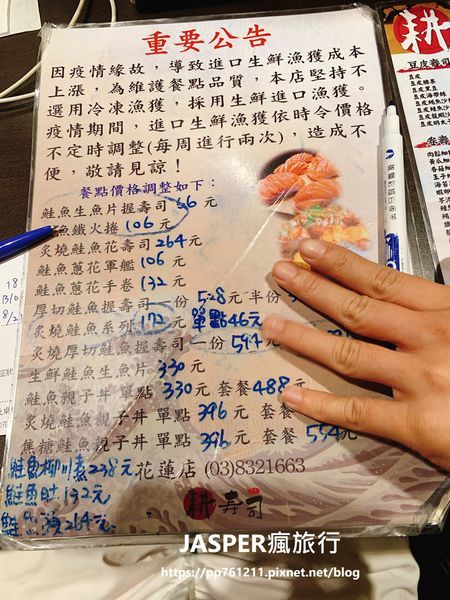 重要公告
因疫情緣故，導致進口生鮮漁獲成本
上漲，為維護餐點品質，本店堅持不
選用冷凍漁獲，採用生鮮進口漁獲。
疫情期間，進口生鮮漁獲依時令價格
不定時調整(每周進行兩次)，造成不
便，敬請見諒！
餐點價格調整如下：
鮭魚生魚片握壽司 66 元
魚鐵火捲 106 元
炙燒鮭魚花壽司 264 元
鮭魚蔥花軍艦 106 元
鮭魚蔥花手卷 132 元
厚切鮭魚握壽司一份 528 元 半份
炙燒鮭魚系列 172 元 單點46元
炙燒厚切鮭魚握壽司一份 594
生鮮鮭魚生魚片 330 元
鮭魚親子丼 單點 330 元 套餐 488
炙燒鮭魚親子丼 單點 396 元 套餐
焦糖鮭魚親子丼 單點 396 元 套餐 554 元
鮭魚柳川煮238元
花蓮店 (03)8321663
鮭魚肚132元
264元
耕壽司
耕
豆皮壽司
豆皮
JASPER瘋旅行
https://pp761211.pixnet.net/blog